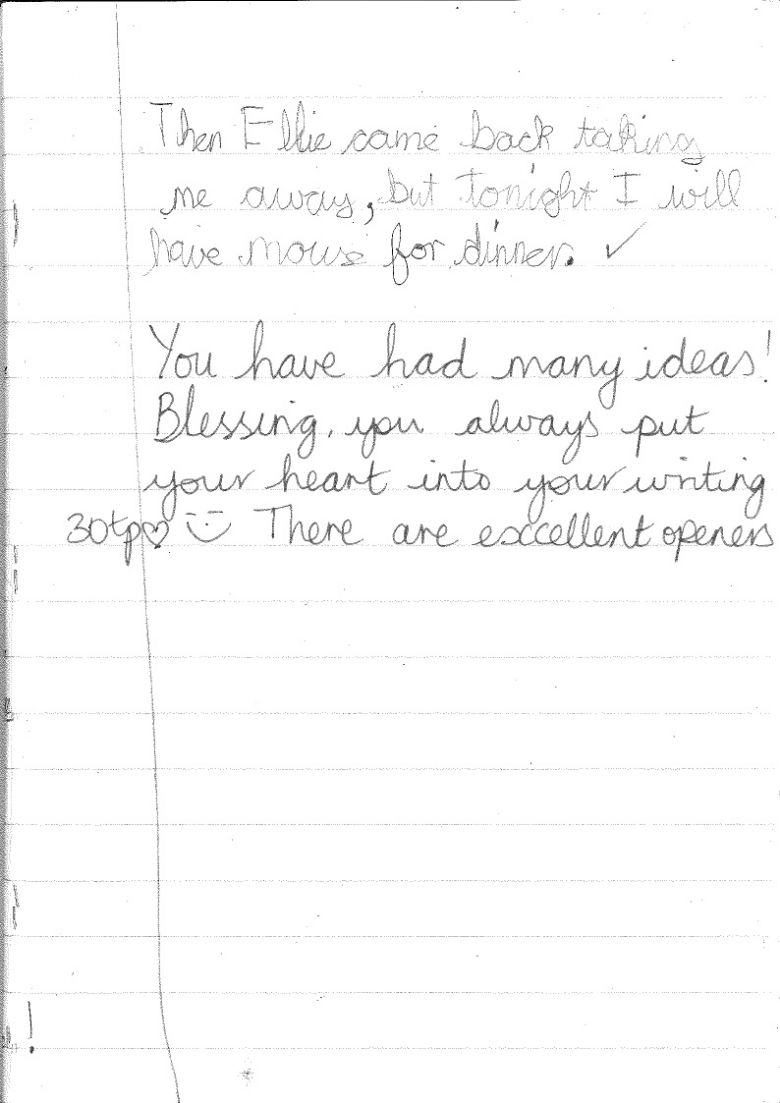 Then Ellie came back taking
me away, but tonight I will
have mouse for dinner. ✓
You have had many ideas!
Blessing, you always put
your heart into your writing
30tp♡ There are excellent openers
!